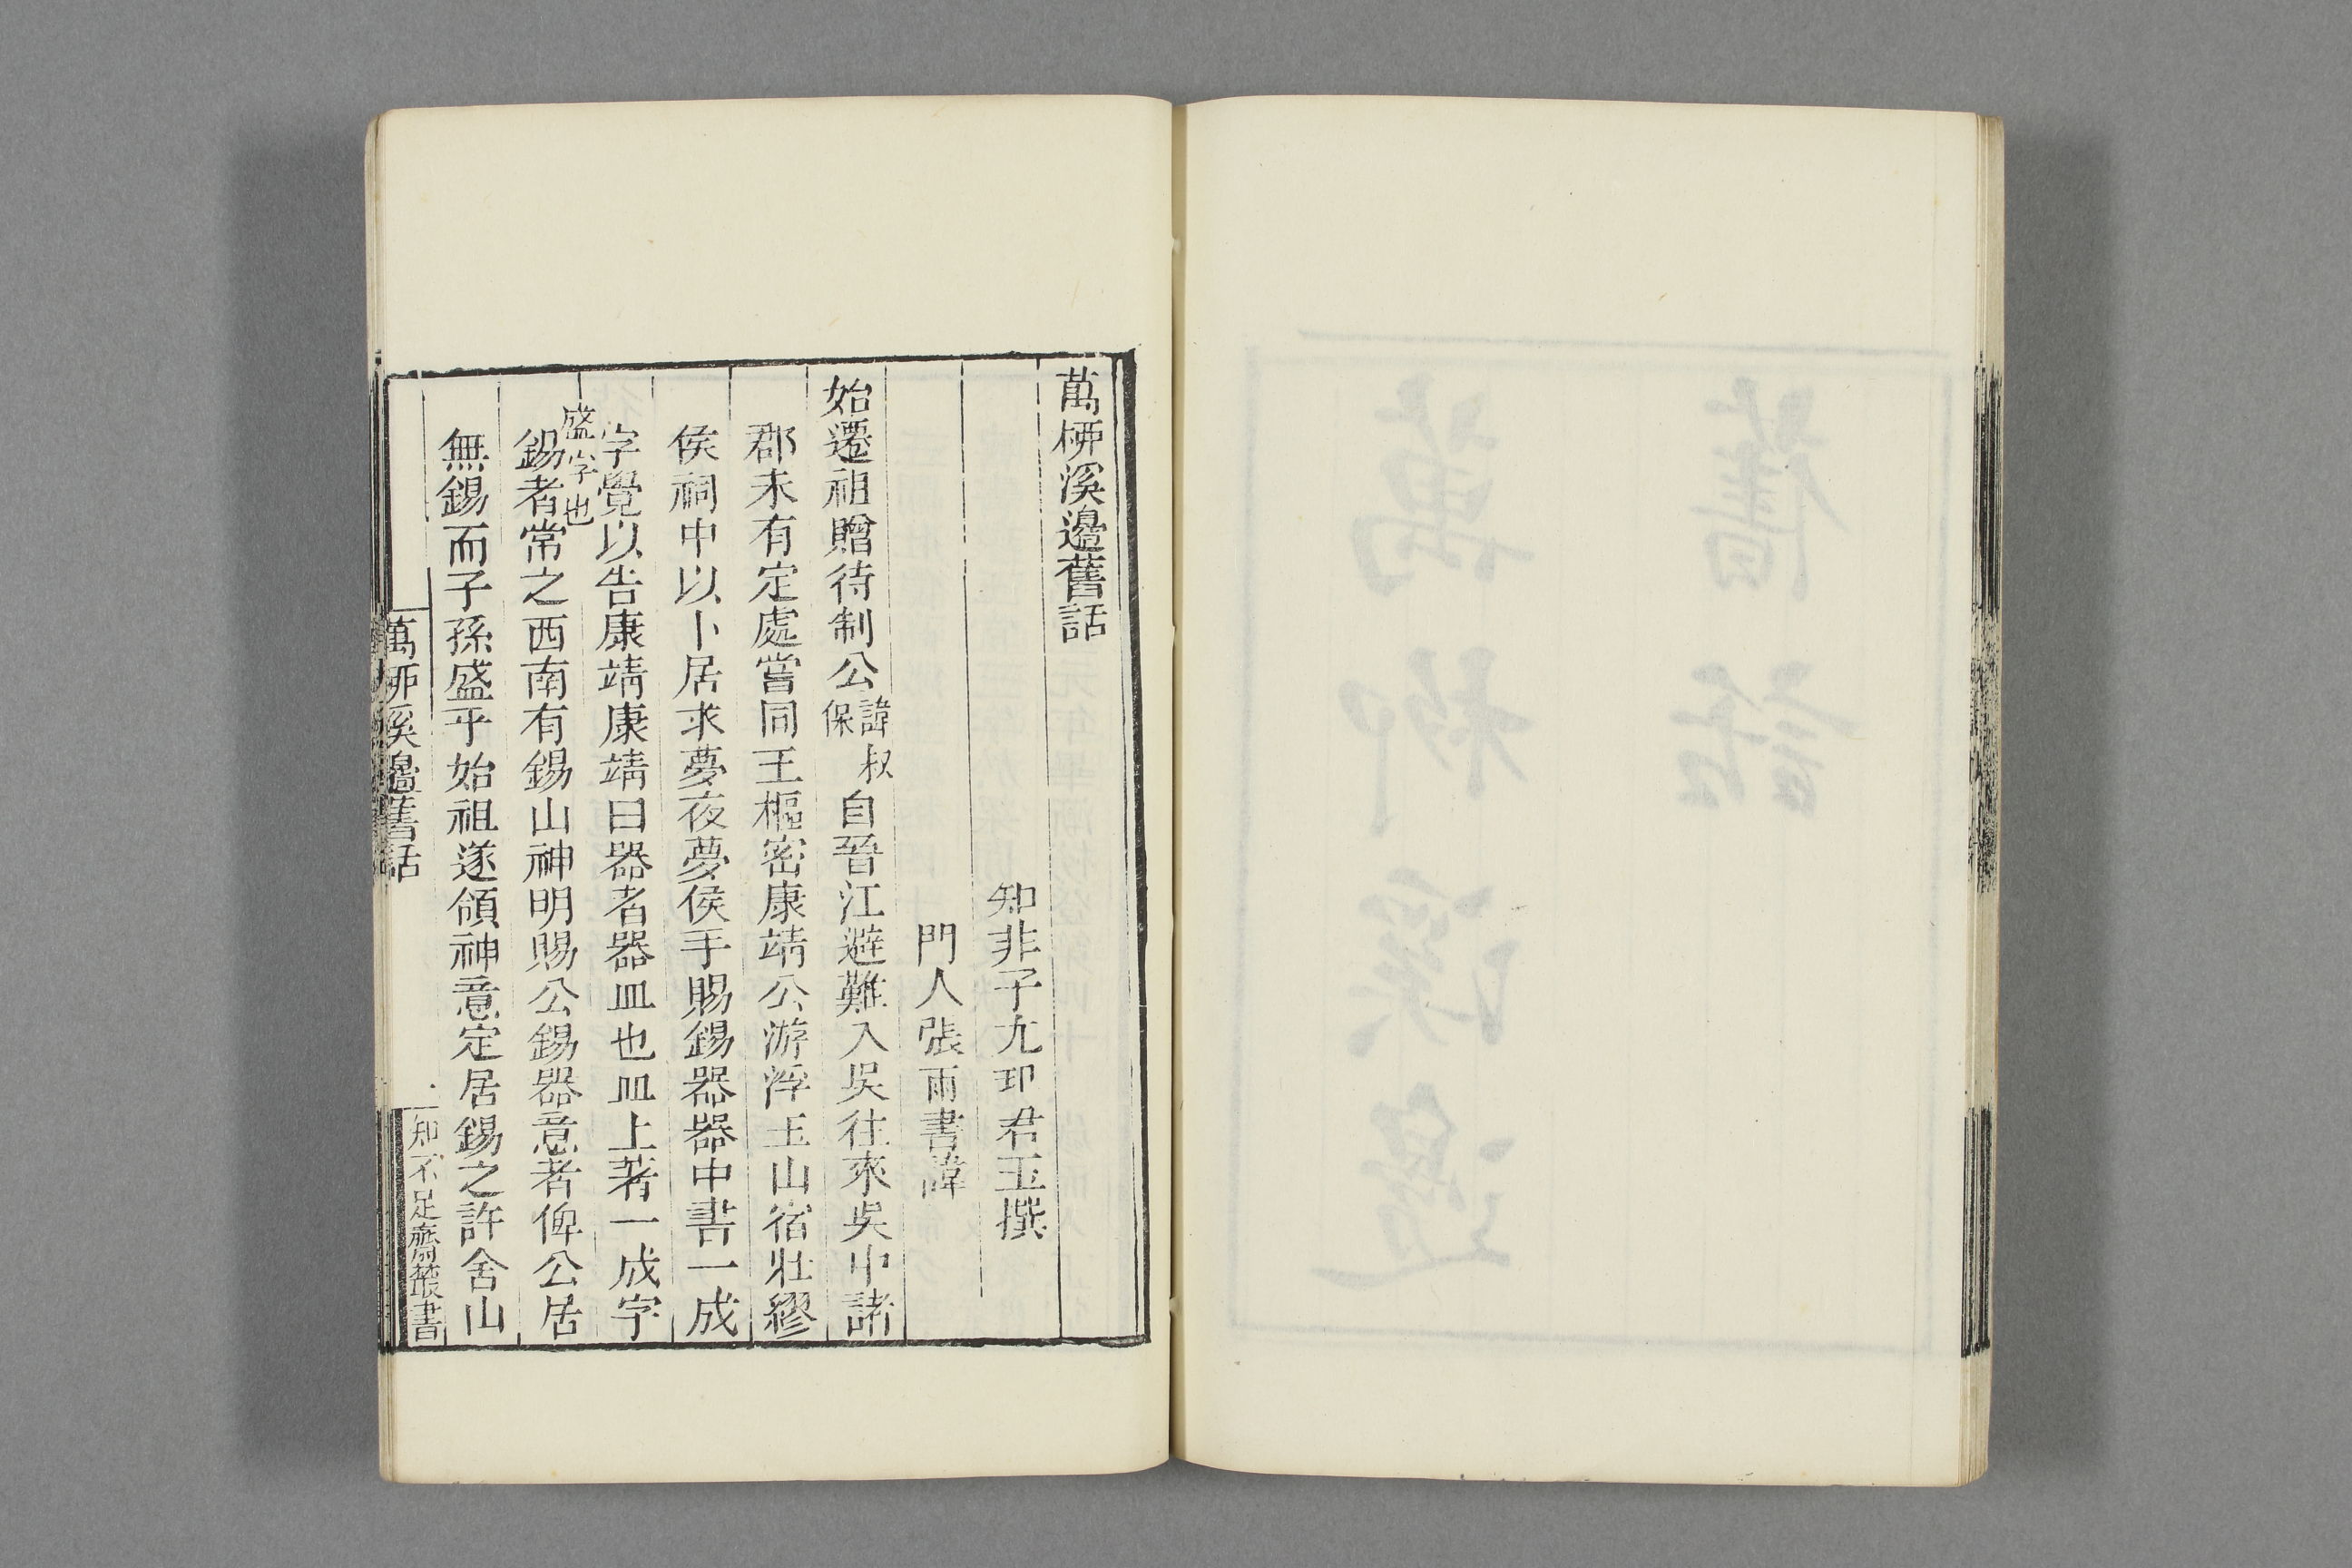 萬桺溪邉舊話
知非子尤玘君玉撰
門人張雨書諱
始遷祖贈待制公諱叔保自晉江避難入吳往來吳中諸
郡未有定處嘗同王樞密康靖公游浮玉山宿壯繆
侯祠中以卜居求夢夜夢侯手賜錫器器中書一成
字覺以告康靖康靖曰器者器皿也皿上著一成字
盛字也
錫者常之西南有錫山神明賜公錫器意者俾公居
無錫而子孫盛乎始祖遂領神意定居錫之許舍山
萬桺溪邉舊話
一
知不足齋叢書